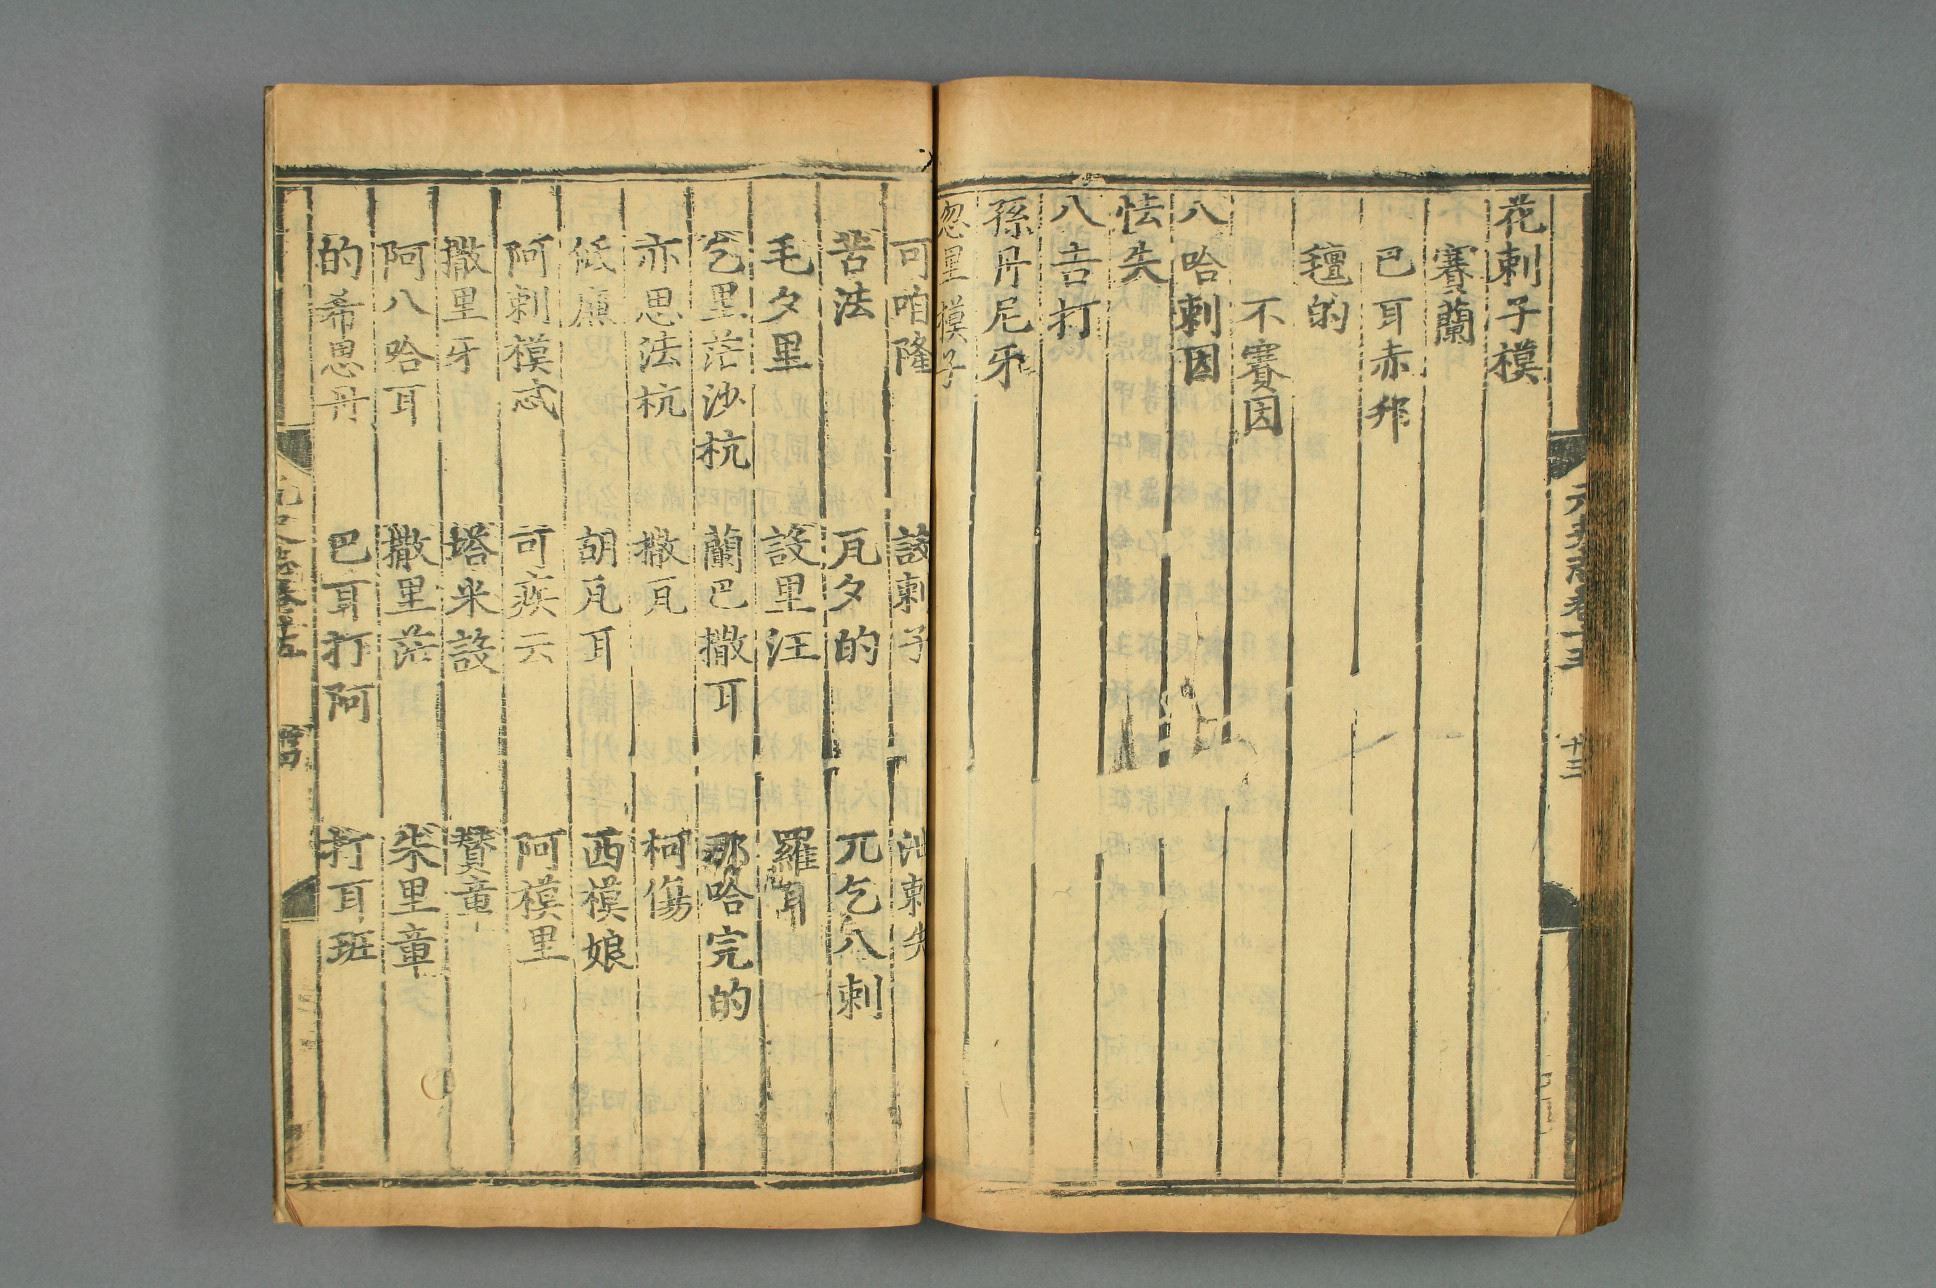 花剌子模
賽蘭
巴耳赤邗
氊的
不賽因
八哈剌因
怯失
八吉打
孫丹尼牙
忽里模子
可咱隆 設剌子 泄剌失
苦法 瓦夕的 兀乞八剌
毛夕里 設里汪 羅耳
乞里茫沙杭 蘭巴撒耳 那哈完的
亦思法杭 撒瓦 柯傷
低廉 胡瓦耳 西模娘
阿剌模忒 可疾云 阿模里
撒里牙 塔米設 贊章
阿八哈耳 撒里茫 朱里章
的希思丹 巴耳打阿 打耳班
十三